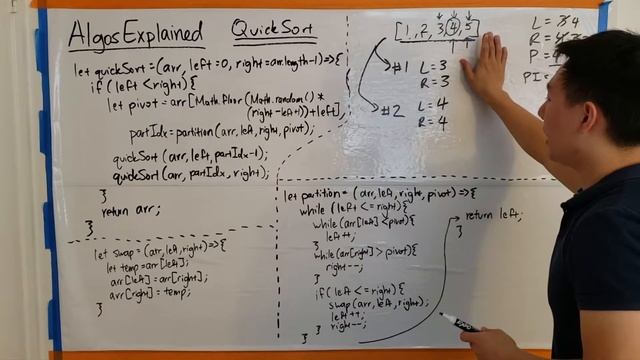 AlgosExplained QuickSort
let quickSort=(arr, left=0, right=arr.length-1)=>{
if (left<right){
let pivot=arr[Math.floor(Math.random()*
(right-left+1))+left],
partIdx=partition(arr,left,right,pivot);
quickSort(arr,left,partIdx-1);
quickSort(arr,partIdx,right);
}
return arr;
}
let swap=(arr,left,right)=>{
let temp=arr[left];
arr[left]=arr[right];
arr[right]=temp;
}
[1,2,3,4,5]
#1 L=3
R=3
#2 L=4
R=4
L=3 4
R=
P=
PI=
let partition=(arr,left,right,pivot)=>{
while (left<=right){
while(arr[left]<pivot){
left++;
}
while(arr[right]>pivot){
right--;
}
if(left<=right){
swap(arr,left,right);
left++;
right--;
}
}
return left;
}
EXPO